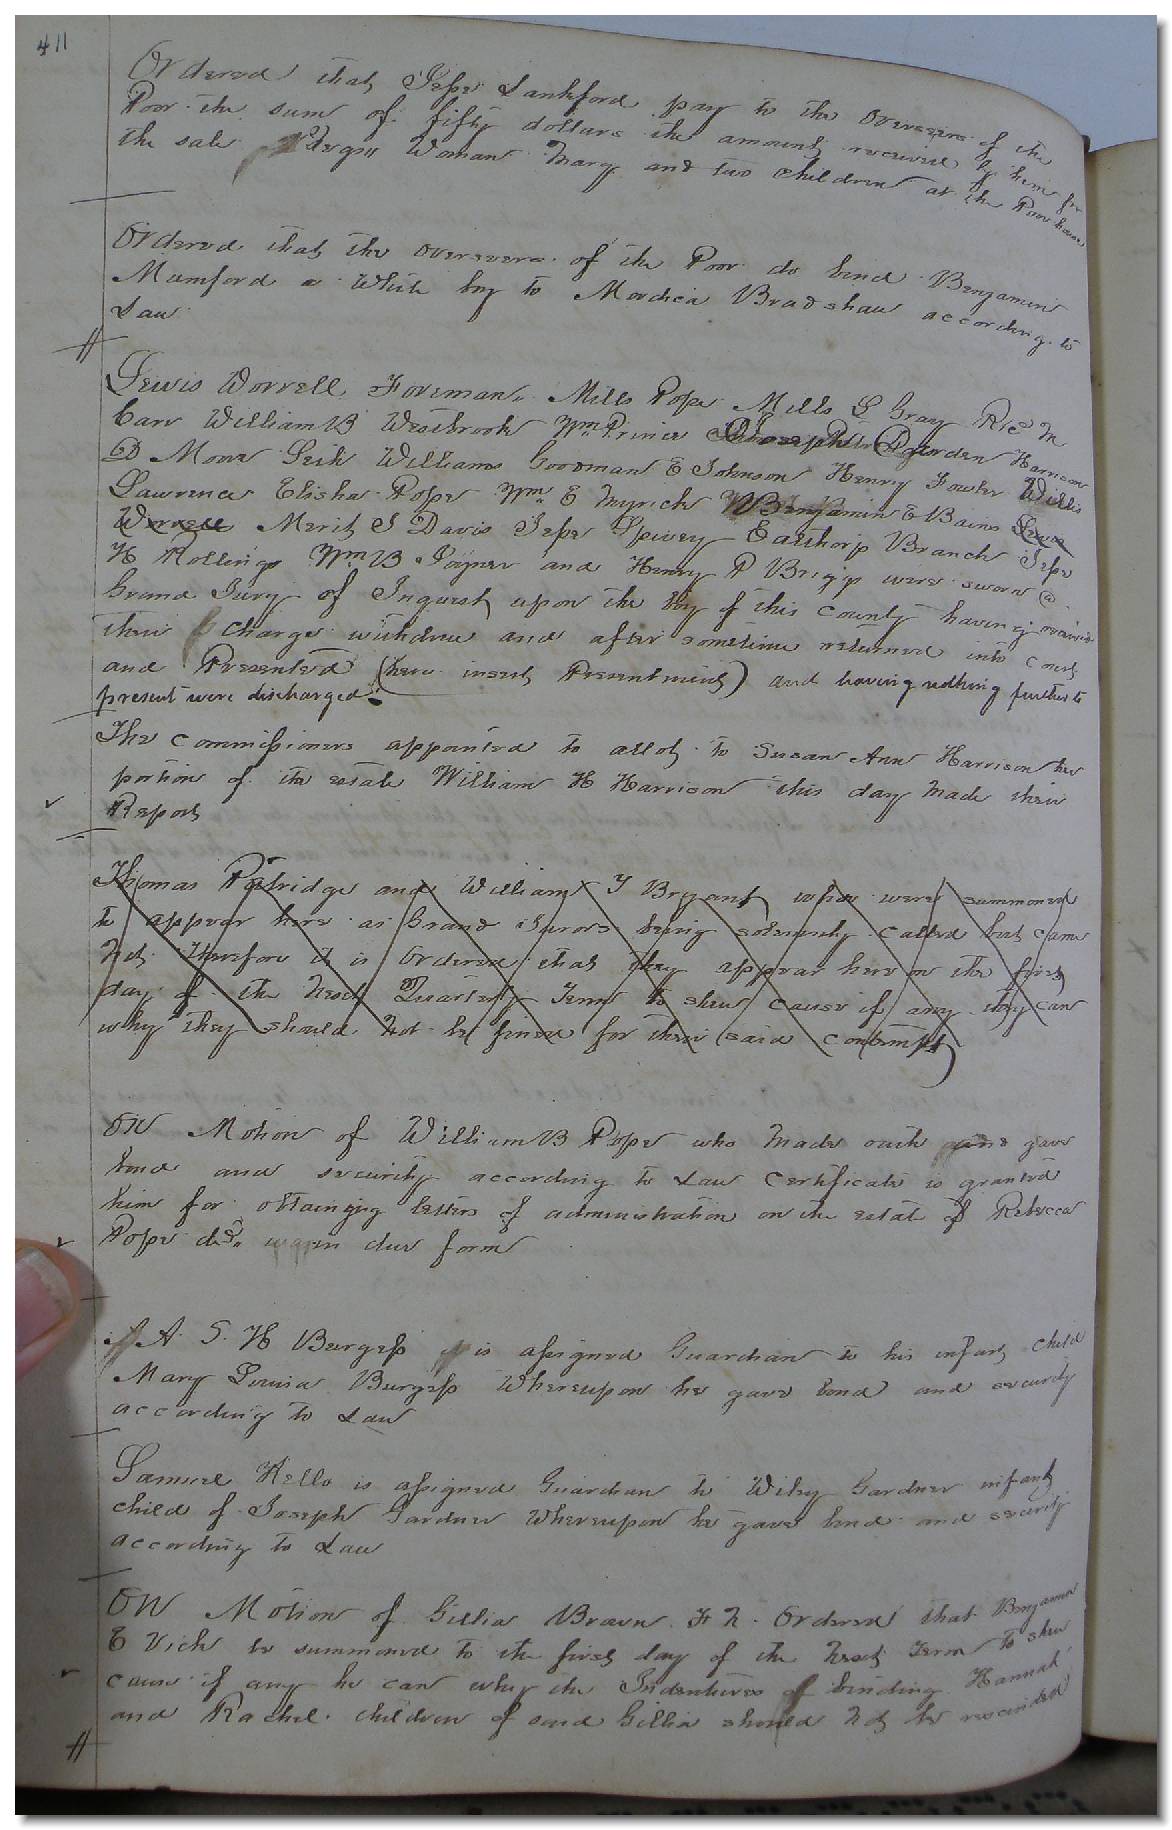 411
Ordered that Jesse Lankford pay to the overseers of the
Poor the sum of fifty dollars the amount received by him for
the sale Negro Woman Mary and two children at the Poor house
Ordered that the overseers of the Poor do bind Benjamin
Mumford a White boy to Mordica Bradshaw according to
Law
Lewis Worrell Foreman, Mills Pope Mills L Gray Ric M
Carr William B Westbrook Wm Prince Joseph Harrison
D Moore Seth Williams Goodman E Johnson Henry Fowler Willis
Lawrence Elisha Pope Wm E Myrick Benjamin E Bains Lewis
Worrell Merit J Davis Jesse Spivey Eatthorp Branch Jesse
H Rollings Wm B Joyner and Henry P Brigs were sworn a
Grand Jury of Inquest upon the body of this county having received
their charge withdrew and after sometime returned into Court
and Presented (here insert Presentments) and having nothing further to
present were discharged.
The commissioners appointed to allot to Susan Ann Harrison her
portion of the estate William H Harrison this day made their
Report
Thomas Patridge and William Y Bryant who were summoned
to appear here as Grand Jurors being solemnly called but came
Not, therefore it is Ordered that they appear here on the first
day of the Next Quarterly Term to shew cause if any they can
why they should Not be fined for their said contempt
ON Motion of William B Pope who made oath and gave
bond and security according to Law Certificate is granted
him for obtaining letters of administration on the estate of Rebecca
Pope decd. in due form
A. S. H Burgess is assigned Guardian to his infant child
Mary Louisa Burgess Whereupon he gave bond and security
according to Law
Samuel Kello is assigned Guardian to Wiley Gardner infant
child of Joseph Gardner Whereupon he gave bond and security
according to Law
ON Motion of Gillia Brown F N. Ordered that Benjamin
E Vick be summoned to the first day of the Next Term to shew
cause if any he can why the Indentures of binding Hannah
and Rachel children of said Gillia should Not be rescinded